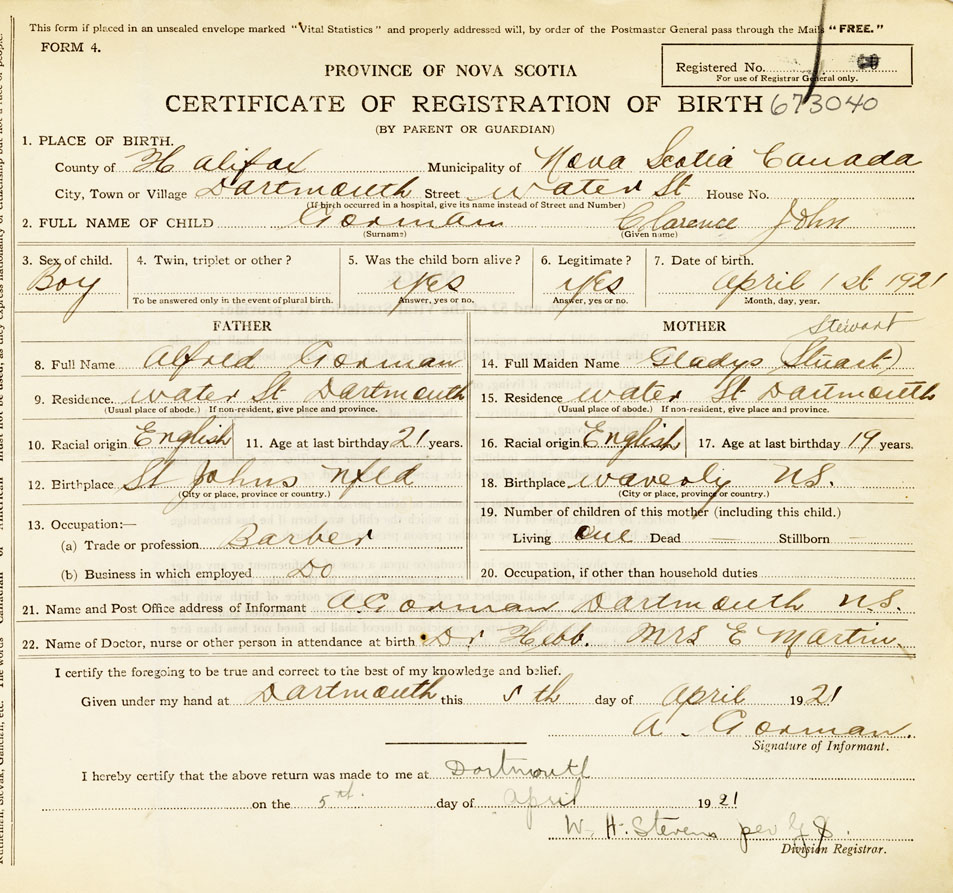 This form if placed in an unsealed envelope marked "Vital Statistics" and properly addressed will, by order of the Postmaster General pass through the Mails "FREE."
FORM 4.
Registered No.
For use of Registrar General only.
PROVINCE OF NOVA SCOTIA
CERTIFICATE OF REGISTRATION OF BIRTH 673040
(BY PARENT OR GUARDIAN)
1. PLACE OF BIRTH.
County of Halifax Municipality of Nova Scotia Canada
City, Town or Village Dartmouth Street water St House No.
(If birth occurred in a hospital, give its name instead of Street and Number)
2. FULL NAME OF CHILD Gorman Clarence John
(Surname) (Given name)
3. Sex of child. 4. Twin, triplet or other ? 5. Was the child born alive ? 6. Legitimate ? 7. Date of birth.
Boy yes yes April 1 st 1921
To be answered only in the event of plural birth. Answer, yes or no. Answer, yes or no. Month, day, year.
FATHER MOTHER Stewart
8. Full Name Alfred Gorman 14. Full Maiden Name Gladys (Stuart)
9. Residence water St Dartmouth 15. Residence water St Dartmouth
(Usual place of abode.) If non-resident, give place and province. (Usual place of abode.) If non-resident, give place and province.
10. Racial origin English 11. Age at last birthday 21 years. 16. Racial origin English 17. Age at last birthday 19 years.
12. Birthplace St Johns Nfld 18. Birthplace waverly NS.
(City or place, province or country.) (City or place, province or country.)
13. Occupation:— 19. Number of children of this mother (including this child.)
(a) Trade or profession Barber Living one Dead — Stillborn —
(b) Business in which employed Do 20. Occupation, if other than household duties
21. Name and Post Office address of Informant A. Gorman Dartmouth N.S.
22. Name of Doctor, nurse or other person in attendance at birth Dr Hebb. Mrs E Martin.
I certify the foregoing to be true and correct to the best of my knowledge and belief.
Given under my hand at Dartmouth this 5 th day of April 1921
A. Gorman.
Signature of Informant.
I hereby certify that the above return was made to me at Dartmouth
on the 5th day of April 1921
W. H. Stevens per
Division Registrar.